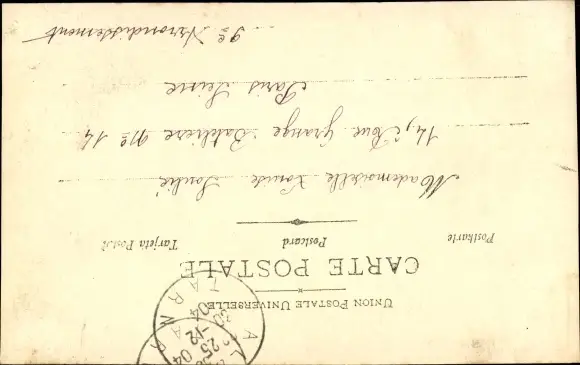 UNION POSTALE UNIVERSELLE
CARTE POSTALE
Postkarte Postcard Tarjeta Postal
Mademoiselle Louise
14, Rue Grange Batelière Nº 14
Paris Seine
9e Arrondissement
TARN
25
04